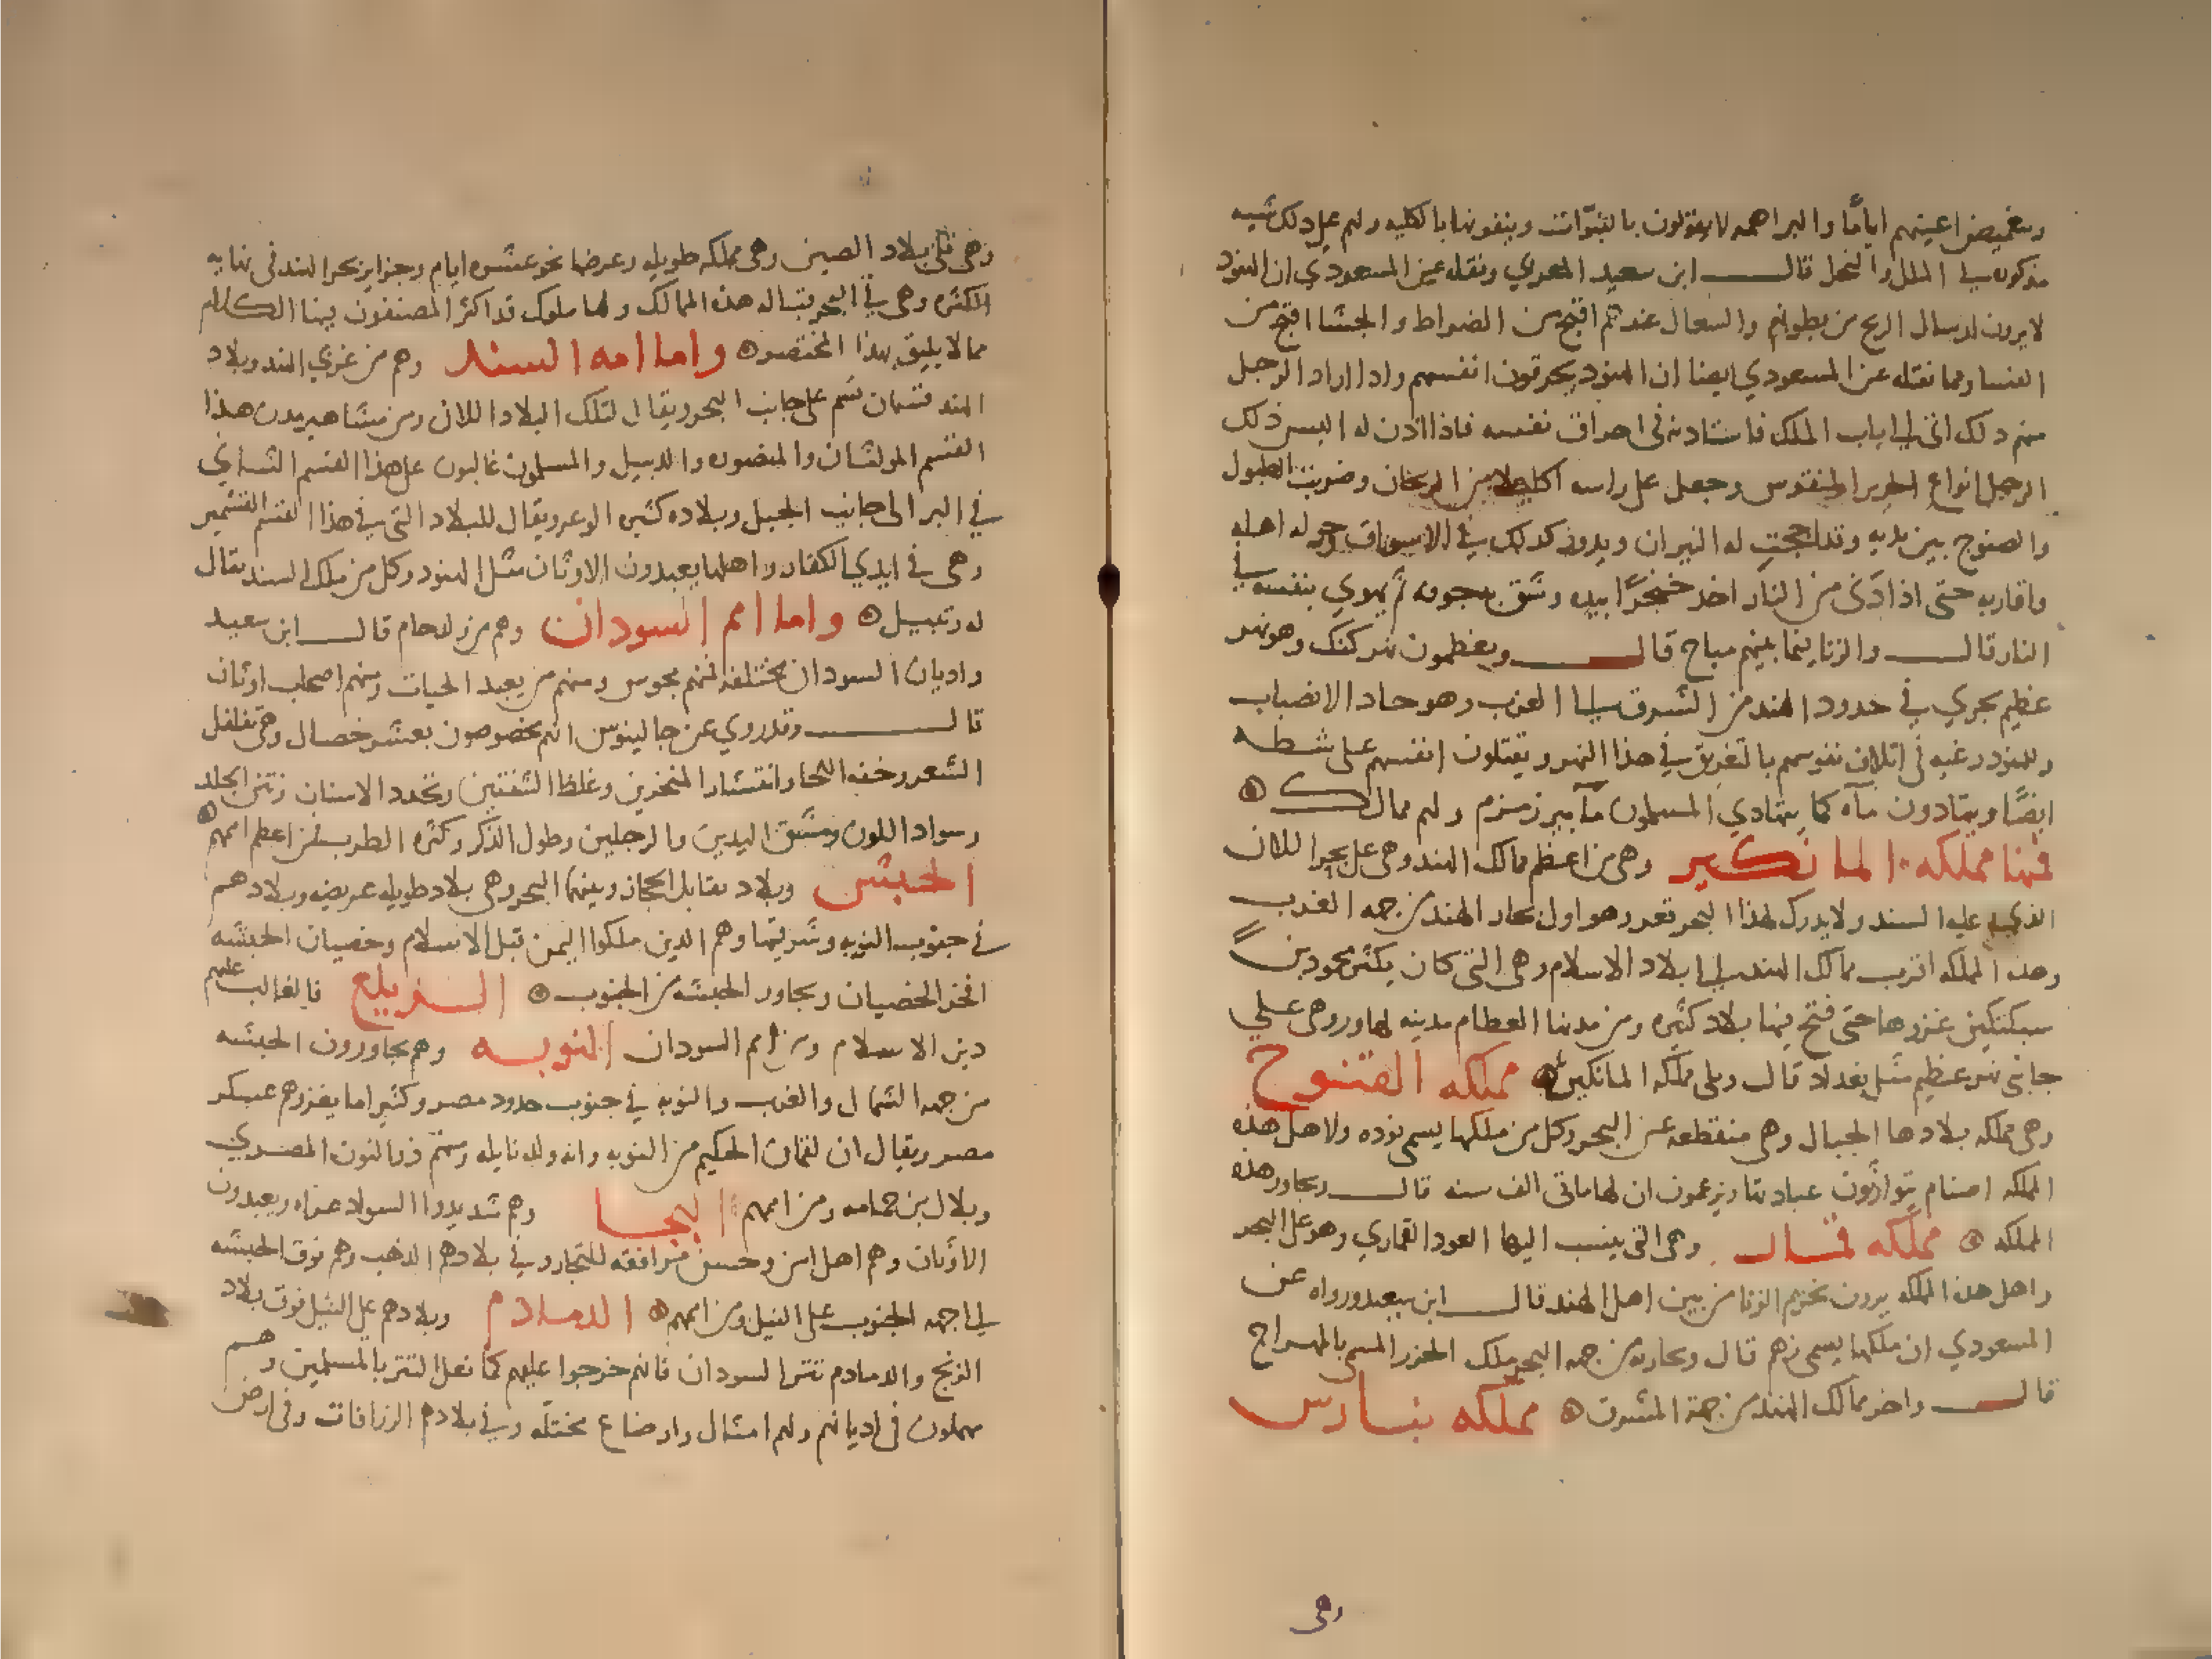 وبتغميض اعينهم اياما والبراهمه لا يقولون بالنبوّات وينفونها بالكليه ولهم على ذلك شبه
مذكوره في الملل والنحل قال ابن سعيد المغربي ونقله عن المسعودي ان الهنود
لا يرون ارسال الريح من بطونهم والسعال عندهم اقبح من الضراط والجشا اقبح من
الفسا ومما نقله عن المسعودي ايضا ان الهنود يحرقون انفسهم واذا اراد الرجل
منهم ذلك اتى الى باب الملك فاستاذنه في احراق نفسه فاذا اذن له البس ذلك
الرجل انواع الحرير المنقوش وجعل على راسه اكليلا من الريحان وضربت الطبول
والصنوج بين يديه وقد اججت له النيران ويدور كذلك في الاسواق حوله اهله
واقاربه حتى اذا دنى من النار اخذ خنجرًا بيده وشق به جوفه ثم يهوي بنفسه في
النار قال والزنا فيما بينهم مباح قال ويعظمون نهر كنك وهو نهر
عظيم يجري في حدود الهند من الشرق الى الغرب وهو حاد الانصباب
وللهنود رغبه في اتلاف نفوسهم بالتغريق في هذا النهر ويقتلون انفسهم على شطه
ايضًا ويتهادون مآه كما يتهادي المسلمون مآ بير زمزم ولهم ممالك
فمنها مملكه المانكير وهي من اعظم ممالك الهند وهي على بحر اللان
الذي عليه السند ولا يدرك لهذا البحر قعر وهو اول بحار الهند من جهه الغرب
وهذه المملكه اقرب ممالك الهند الى بلاد الاسلام وهي التي كان يكثر محمود بن
سبكتكين غزوها حتى فتح فيها بلاد كثيره ومن مدنها العظام مدينه لهاور وهي على
جانبي نهر عظيم مثل بغداد قال ويلي مملكه المانكير مملكه القنوج
وهي مملكه بلادها الجبال وهي منقطعه عن البحر وكل من ملكها يسمى نوده ولاهل هذه
المملكه اصنام يتوارثون عبادتها ويزعمون ان لها مائتي الف سنه قال ويجاور هذه
المملكه مملكه قمار وهي التي ينسب اليها العود القماري وهو على البحر
واهل هذه المملكه يرون تحريم الزنا من بين اهل الهند قال ابن سعيد ورواه عن
المسعودي ان ملكها يسمى زهم قال ويحاربه من جهه البحر ملك الجزر المسمى بالمهراج
قال واخر ممالك الهند من جهة المشرق مملكه بنارس
وهي
وهي تلي بلاد الصين وهي مملكه طويله وعرضا نحو عشره ايام وجزاير بحر الهند في نهايه
الكثره وهي في البحر قباله هذه الممالك ولها ملوك قد اكثر المصنفون فيها الكلام
مما لا يليق بهذا المختصر واما امه السند وهم من غربي الهند وبلاد
الهند قسمان قسم على جانب البحر ويقال لتلك البلاد اللان ومن مشاهير مدن هذا
القسم المولتان والمنصوره والدبيل والمسلمون غالبون على هذا القسم الثاني
في البر الى جانب الجبل وبلاده كثيره الوعر ويقال للبلاد التي في هذا القسم القشمير
وهي في ايدي الكفار واهلها يعبدون الاوثان مثل الهنود وكل من ملك السند يقال
له رتبيل واما امم السودان وهم من ولد حام قال ابن سعيد
واديان السودان مختلفه فمنهم مجوس ومنهم من يعبد الحيات ومنهم اصحاب اوثان
قال وقد روي عن جالينوس انهم مخصوصون بعشر خصال وهي تفلفل
الشعر وخفه اللحا وانتشار المنخرين وغلظ الشفتين وتحدد الاسنان ونتن الجلد
وسواد اللون وتشقق اليدين والرجلين وطول الذكر وكثره الطرب فمن اعظم اممهم
الحبش وبلادهم تقابل الحجاز وبينهما البحر وهي بلاد طويله عريضه وبلادهم
في جنوب النوبه وشرقيها وهم الذين ملكوا اليمن قبل الاسلام وخصيان الحبشه
افخر الخصيان ويجاور الحبشه من الجنوب الزيلع فالغالب عليهم
دين الاسلام ومن امم السودان النوبه وهم يجاورون الحبشه
من جهه الشمال والغرب والنوبه في جنوب حدود مصر وكثيرا ما يغزوهم عسكر
مصر ويقال ان لقمان الحكيم من النوبه وانه ولد بايله ومنهم ذو النون المصري
وبلال بن حمامه ومن اممهم البجا وهم شديدوا السواد عراه ويعبدون
الاوثان وهم اهل امن وحسن مرافقه للتجار وفي بلادهم الذهب وهم فوق الحبشه
الى جهه الجنوب على النيل ومن اممهم الدمادم وبلادهم على النيل فوق بلاد
الزنج والدمادم تتر السودان فانهم خرجوا عليهم كما فعل التتر بالمسلمين وهم
مهملون في اديانهم ولهم امثال واوضاع مختله وفي بلادهم الزرافات وفي ارض